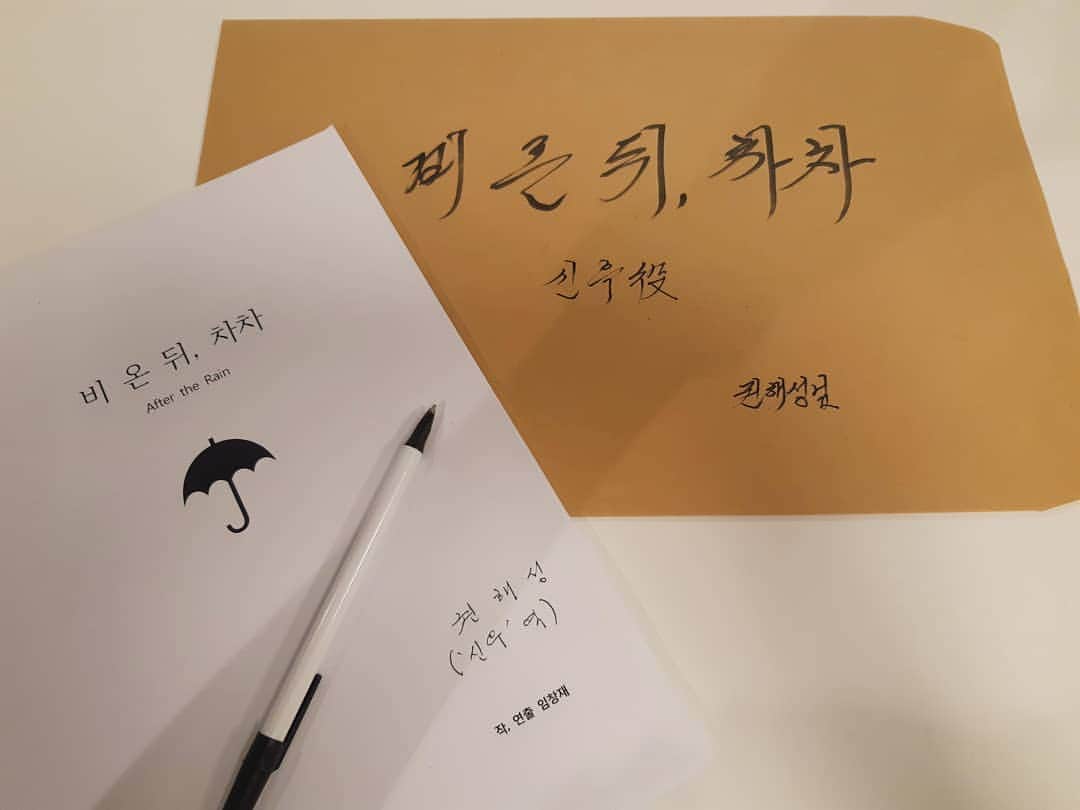 비 온 뒤, 차차
신우役
권해성님
비 온 뒤, 차차
After the Rain
권 해 성
('신우' 역)
작, 연출 임창재